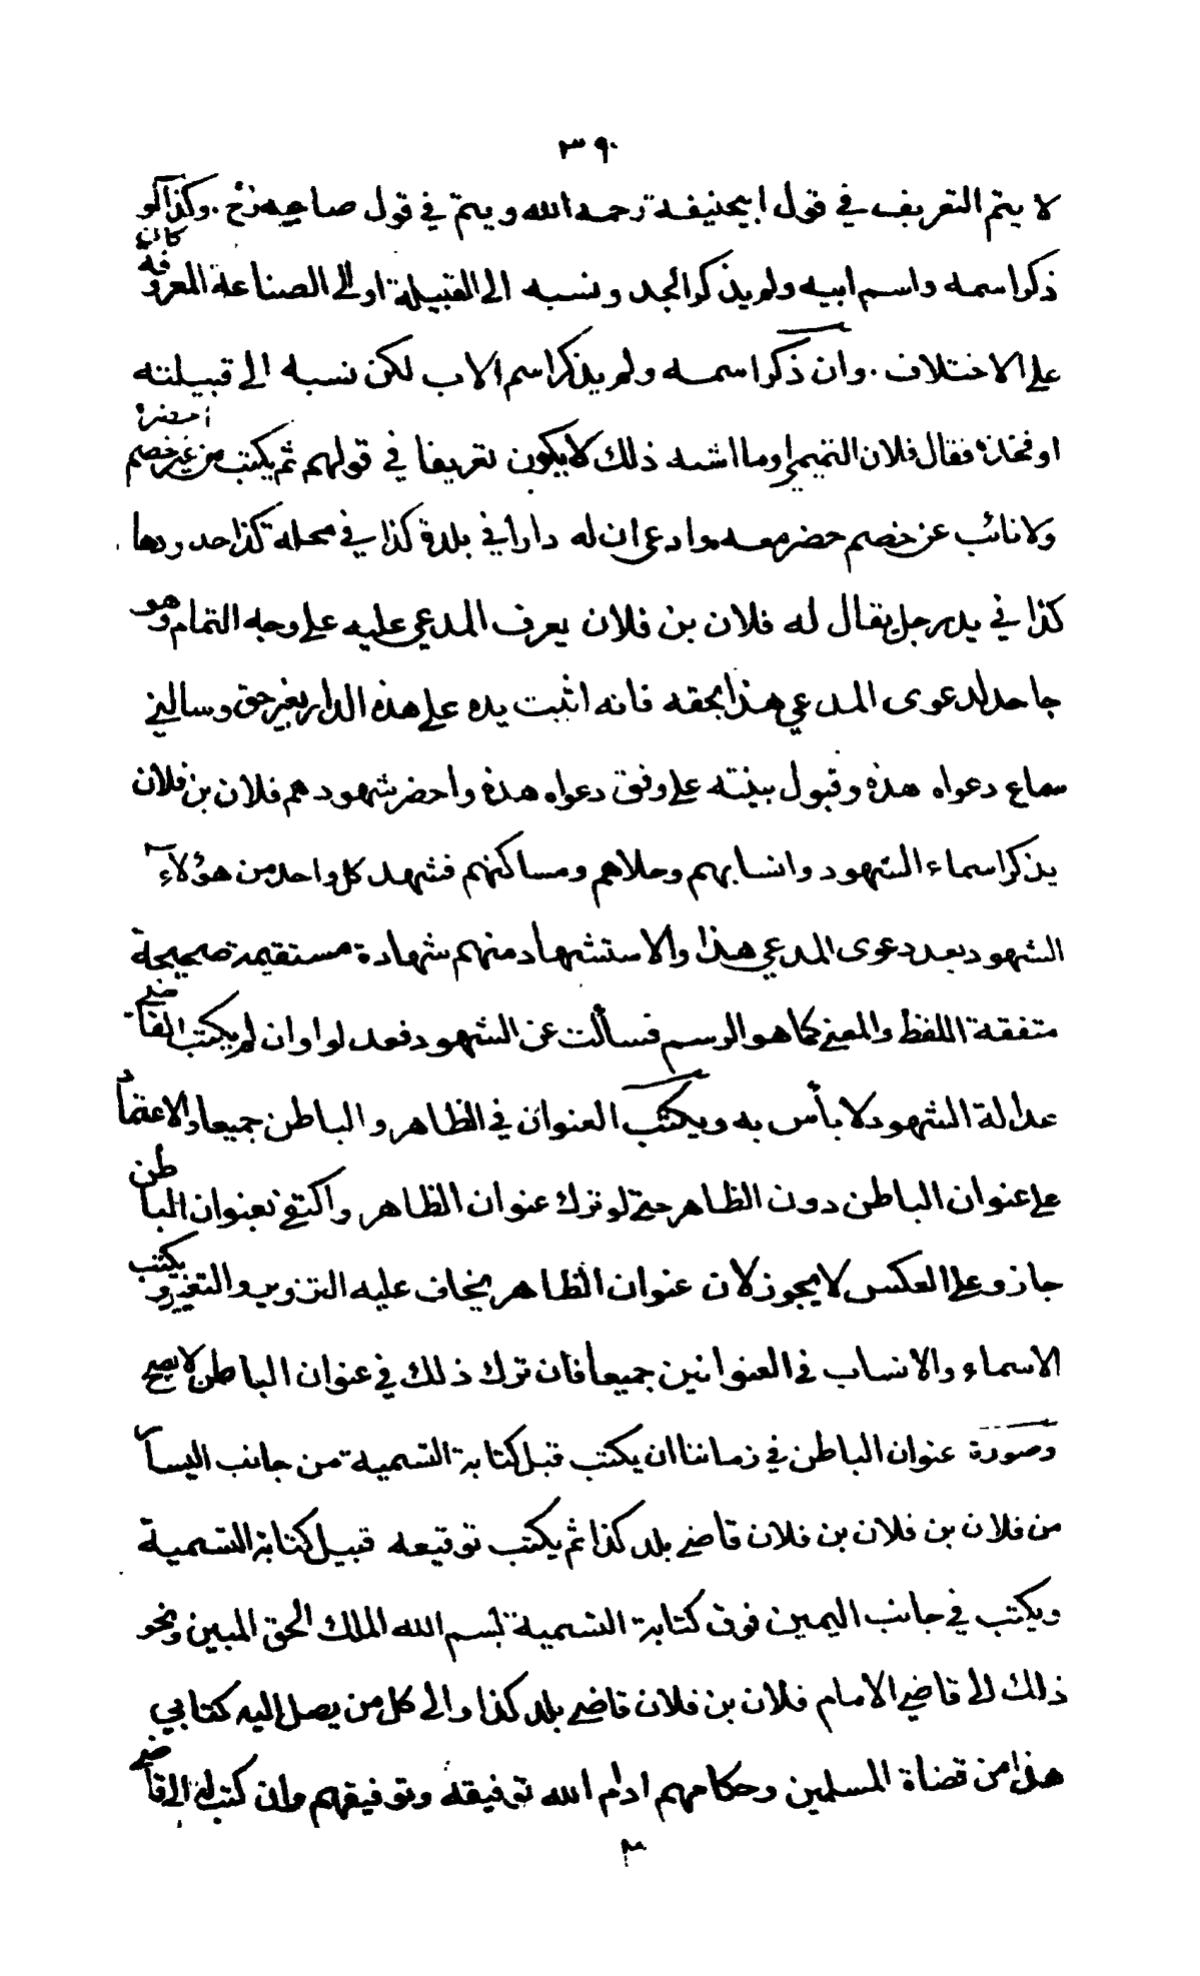 ٣٩٠
لا يتم التعريف في قول ابيحنيفة رحمه الله ويتم في قول صاحبيه رح . وكذا لو كان
ذكر اسمه واسم ابيه ولم يذكر الجد ونسبه الى القبيلة او الى الصناعة المعروفة
على الاختلاف . وان ذكر اسمه ولم يذكر اسم الاب لكن نسبه الى قبيلته
او فخذه فقال فلان التميمي وما اشبه ذلك لا يكون تعريفا في قولهم ثم يكتب من غير خصم احضره
ولا نائب عن خصم حضر معه وادعى ان له دارا في بلدة كذا في محلة كذا حدودها
كذا في يد رجل يقال له فلان بن فلان يعرف المدعي عليه على وجه التمام وهو
جاحد لدعوى المدعي هذا بحقه فانه اثبت يده على هذه الدار بغير حق وسالني
سماع دعواه هذه وقبول بينته على وفق دعواه هذه واحضر شهود هم فلان بن فلان
يذكر اسماء الشهود وانسابهم وحلاهم ومساكنهم فشهد كل واحد من هؤلاء
الشهود بعد دعوى المدعي هذا والاستشهاد منهم شهادة مستقيمة صحيحة
متفقة اللفظ والمعنى كما هو الرسم فسألت عن الشهود فعدلوا وان لم يكتب القاضي
عدالة الشهود لا بأس به ويكتب العنوان في الظاهر والباطن جميعا والاعتماد
على عنوان الباطن دون الظاهر حتى لو ترك عنوان الظاهر واكتفى بعنوان الباطن
جاز وعلى العكس لا يجوز لان عنوان الظاهر يخاف عليه التزوير والتغيير ويكتب
الاسماء والانساب في العنوانين جميعا فان ترك ذلك في عنوان الباطن لا يصح
وصورة عنوان الباطن في زماننا ان يكتب قبل كتابة التسمية من جانب اليسار
من فلان بن فلان بن فلان قاضي بلد كذا ثم يكتب توقيعه قبيل كتابة التسمية
ويكتب في جانب اليمين فوق كتابة التسمية بسم الله الملك الحق المبين ونحو
ذلك الى قاضي الامام فلان بن فلان قاضي بلد كذا والى كل من يصل اليه كتابي
هذا من قضاة المسلمين وحكامهم ادام الله توفيقه وتوفيقهم وان كتب الى القاضي